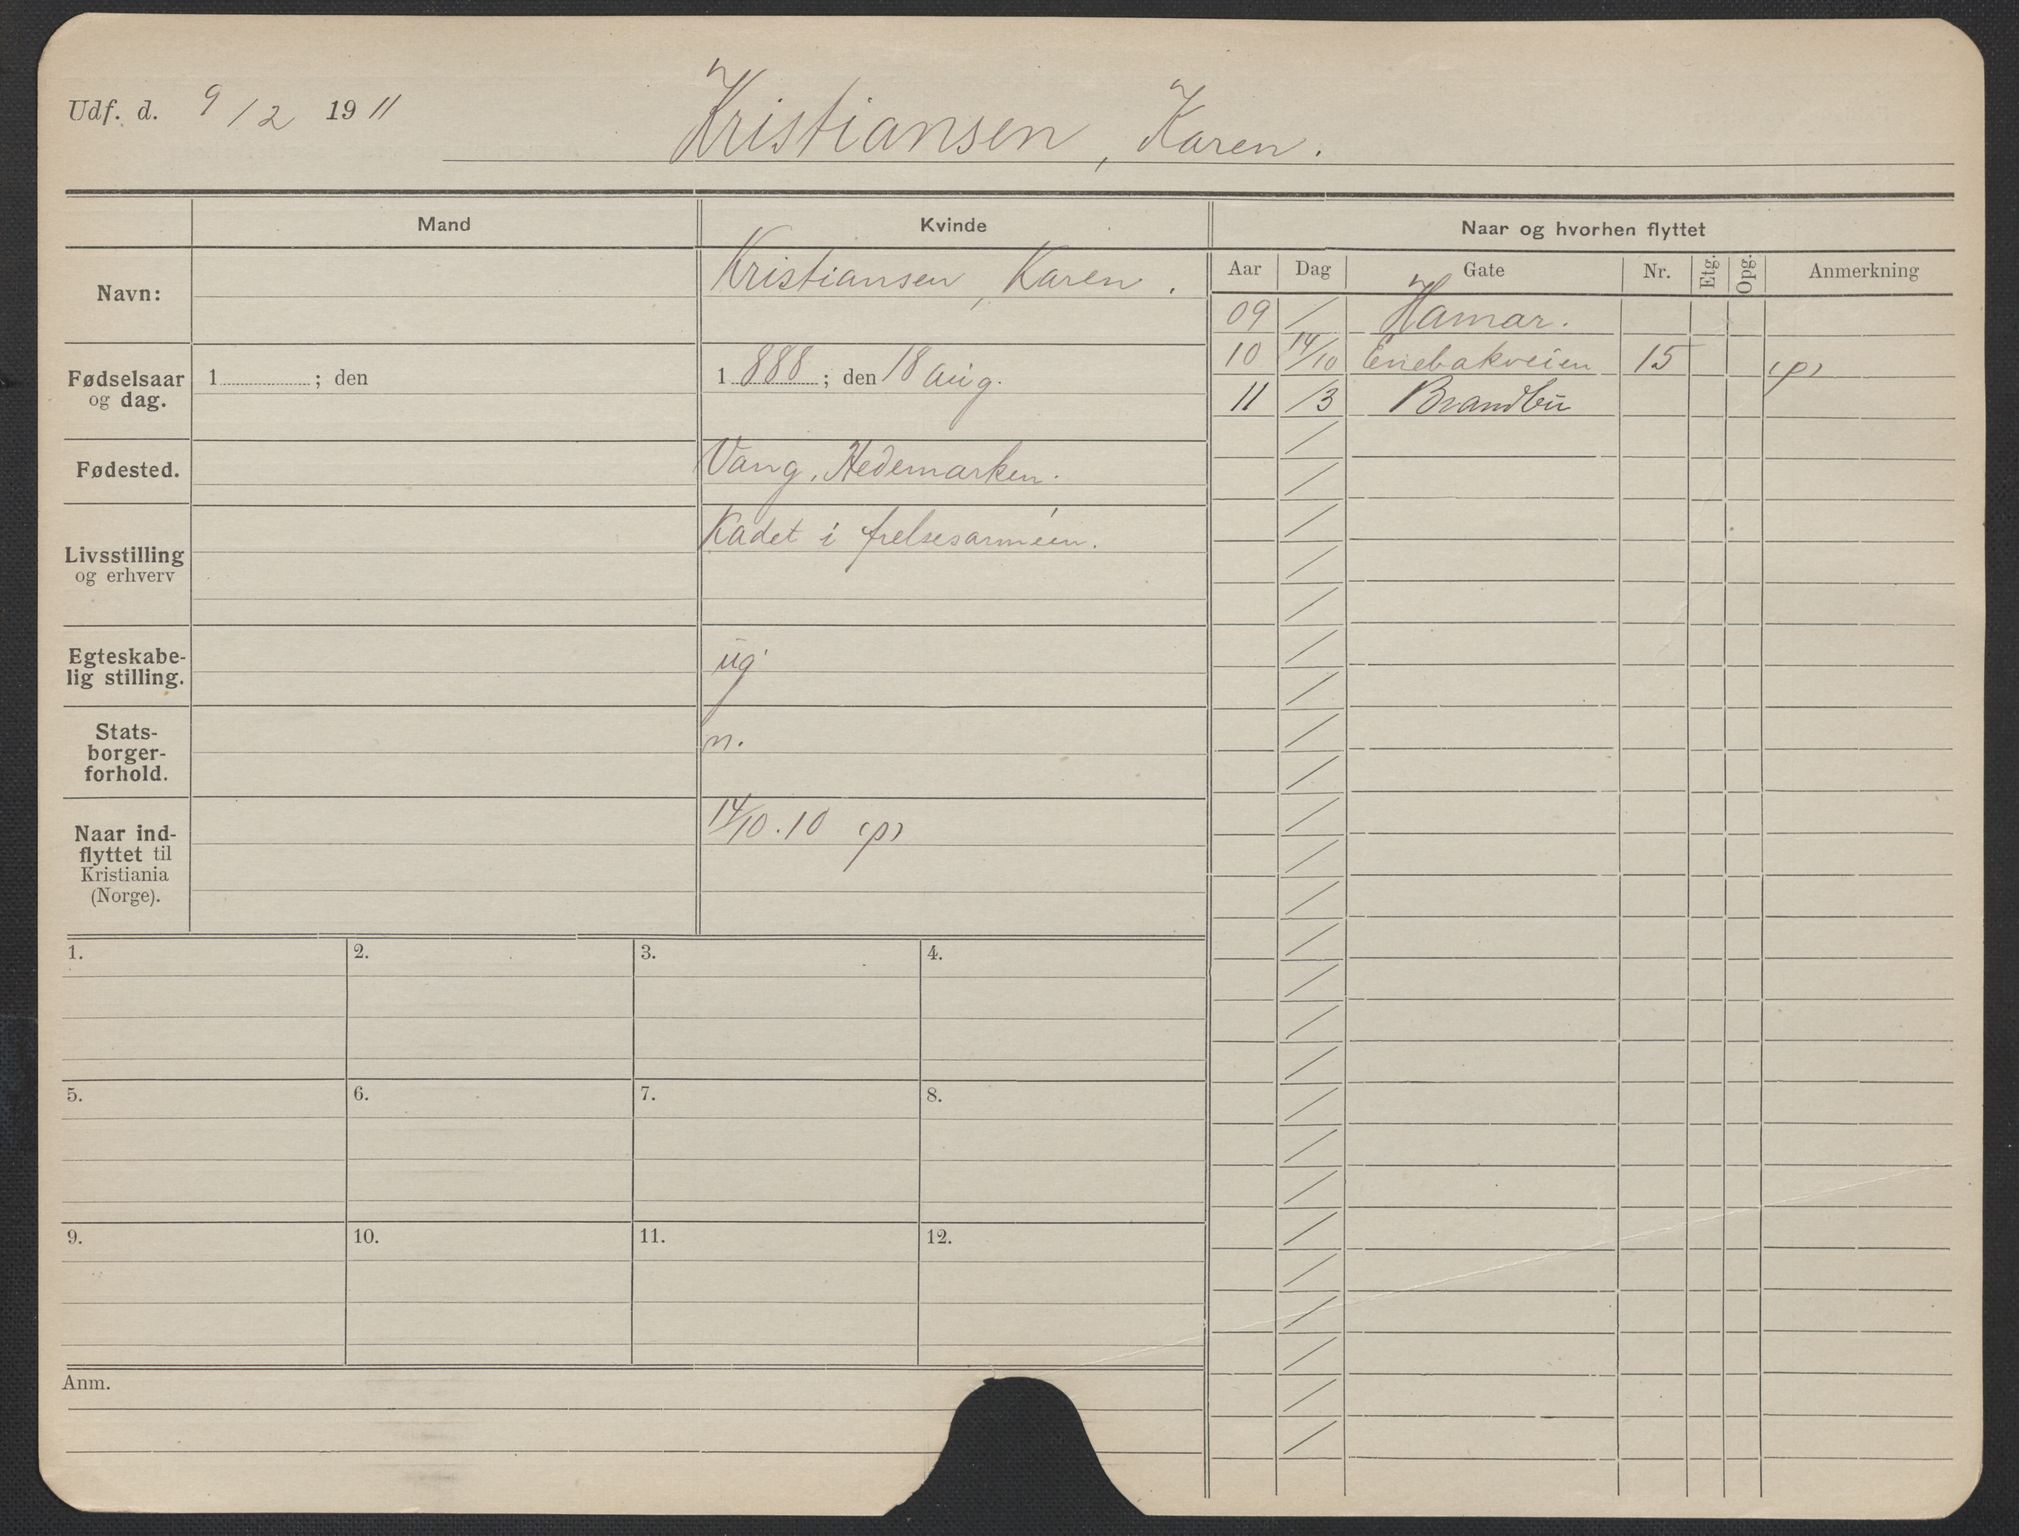 Udf. d. 9/2 1911
Kristiansen, Karen.
Mand
Kvinde
Naar og hvorhen flyttet
Navn:
Kristiansen, Karen.
Fødselsaar
og dag.
1 ; den
1888; den 18 aug.
Fødested.
Vang, Hedemarken.
Livsstilling
og erhverv
Kadet i frelsesarméen.
Egteskabe-
lig stilling.
ug
Stats-
borger-
forhold.
n.
Naar ind-
flyttet til
Kristiania
(Norge).
14/10.10 (p)
Aar Dag Gate Nr. Etg. Opg. Anmerkning
09 / Hamar.
10 14/10 Enebakveien 15 (p)
11 /3 Brandbu
1. 2. 3. 4.
5. 6. 7. 8.
9. 10. 11. 12.
Anm.